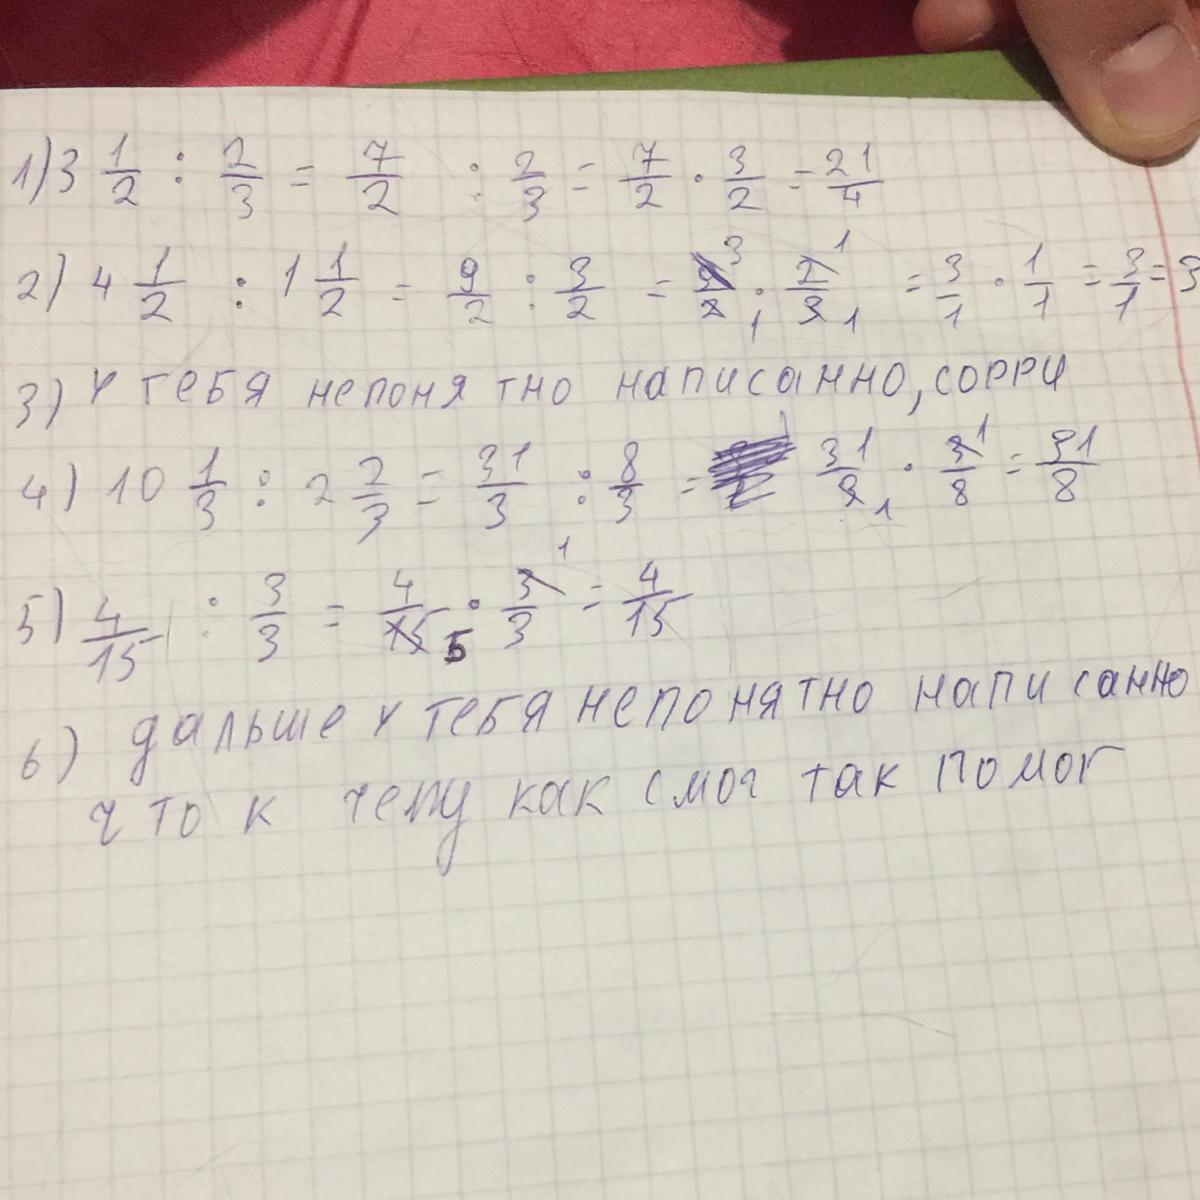 1) 3 1/2 : 2/3 = 7/2 : 2/3 = 7/2 · 3/2 = 21/4
2) 4 1/2 : 1 1/2 = 9/2 : 3/2 = 9/2 3 1 · 2/3 1 1 = 3/1 · 1/1 = 3/1 = 3
3) У тебя непонятно написанно, сорри
4) 10 1/3 : 2 2/3 = 31/3 : 8/3 = 31/3 1 · 3/8 1 = 31/8
5) 4/15 : 3/3 = 4/15 5 · 3/3 1 = 4/15
6) дальше у тебя непонятно написанно
что к чему как смог так помог